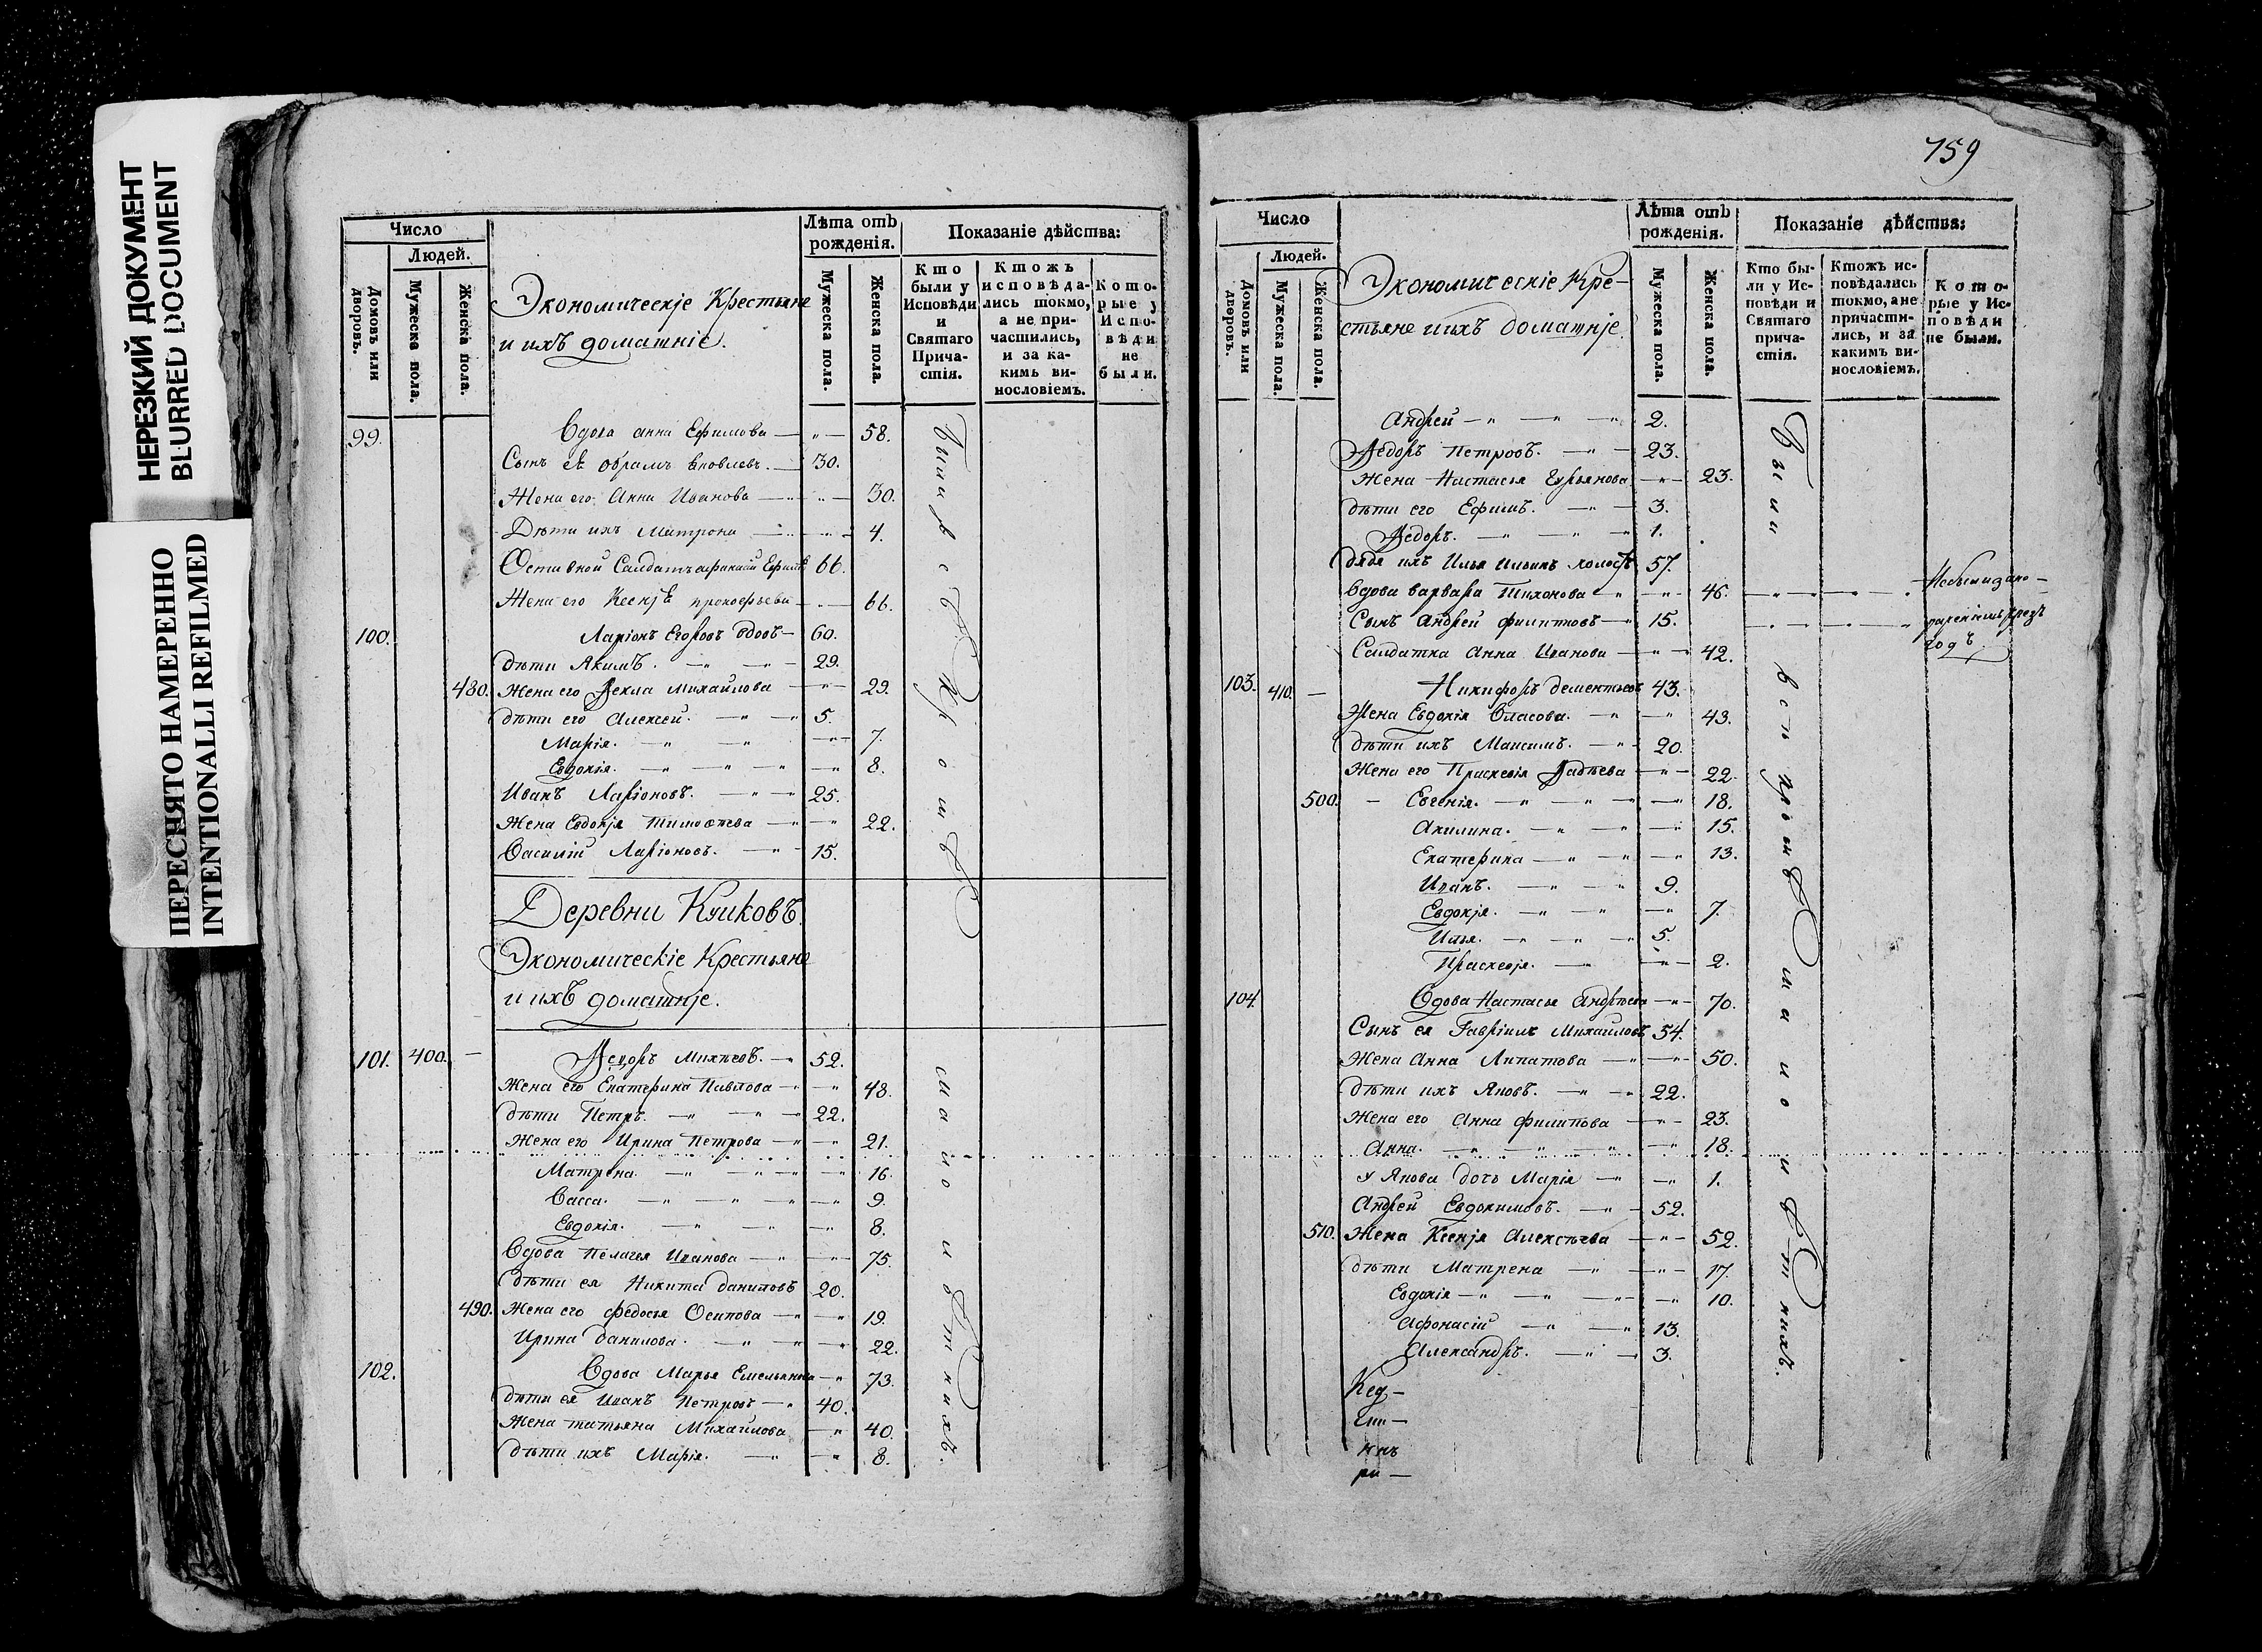 НЕРЕЗКИЙ ДОКУМЕНТ
BLURRED DOCUMENT
ПЕРЕСНЯТО НАМЕРЕННО
INTENTIONALLI REFILMED
Число
Людей.
Домовъ или дворовъ.
Мужеска пола.
Женска пола.
Экономическіе Крестьяне
и ихъ домашніе.
Лѣта отъ рожденія.
Мужеска пола.
Женска пола.
Показаніе дѣйства:
Кто были у Исповѣди и Святаго Причастія.
Ктожъ исповѣдались токмо, а не причастились, и за какимъ винословіемъ.
Которые у Исповѣди не были.
99. Вдова Анна Ефимова 58.
Сынъ ея Яковлевъ. 30.
Жена его Анна Иванова 30.
Дѣти ихъ Матрона 4.
Солдатъ 66.
Жена его прокофьева 66.
100. Ларіонъ Егоровъ вдовъ 60.
дѣти Якимъ. 29.
480. Жена его Ѳекла Михайлова 29.
дѣти его Алексей. 5.
Марія. 7.
Евдокія. 8.
Иванъ Ларіоновъ. 25.
Жена Евдокія Тимоѳеева 22.
Василій Ларіоновъ. 15.
Деревни
Экономическіе Крестьяне
и ихъ домашніе.
101. 400. Ѳедоръ 52.
Жена его Екатерина Павлова 48.
дѣти Петръ. 22.
Жена его Ирина Петрова 21.
Матрена. 16.
Васса. 9.
Евдокія. 8.
Вдова Пелагея Иванова 75.
дѣти ея Никита Даниловъ 20.
490. Жена его Федосья Осипова 19.
Ирина Данилова. 22.
102. Вдова Марья Емельянова 73.
дѣти ея Иванъ Петровъ 40.
Жена Татьяна Михайлова 40.
дѣти ихъ Марія. 8.
759
Число
Людей.
Домовъ или дворовъ.
Мужеска пола.
Женска пола.
Экономическіе Кре-
стьяне и ихъ домашніе.
Лѣта отъ рожденія.
Мужеска пола.
Женска пола.
Показаніе дѣйства:
Кто были у Исповѣди и Святаго причастія.
Ктожъ исповѣдались токмо, а не причастились, и за какимъ винословіемъ.
Которые у Исповѣди не были.
Андрей 2.
Ѳедоръ Петровъ. 23.
Жена Настасья 23.
дѣти его Ефимъ. 3.
Ѳедоръ. 1.
дядя ихъ Илья Ильинъ холостъ 57.
Вдова Варвара Тихонова 46.
Сынъ Андрей Филиповъ 15.
Солдатка Анна Иванова 42.
103. 410. Никифоръ Дементьевъ 43.
Жена Евдокія Власова. 43.
дѣти ихъ Максимъ. 20.
Жена его Прасковія Ѳадѣева 22.
500. Евгенія. 18.
Акилина. 15.
Екатерина 13.
Иванъ. 9.
Евдокія. 7.
Илья. 5.
Прасковія. 2.
104. Вдова Настасья Андрѣева 70.
Сынъ ея Гавріилъ Михайловъ 54.
Жена Анна Липатова 50.
дѣти ихъ Яковъ. 22.
Жена его Анна Филипова 23.
Анна. 18.
у Якова дочь Марія 1.
Андрей Евдокимовъ. 52.
510. Жена Ксенія Алексѣева 52.
дѣти Матрена 17.
Евдокія 10.
Афонасій 13.
Александръ. 3.